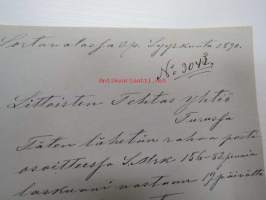 Sortavalassa 2/9 Syyskuuta 1890.
No 3042
Littoisten Tehtas yhtiö
Turussa
Täten lähetän rahaa posti
osoitteessa S.Mrk 156:52 penniä
laskuni vastaan 19 päivältä